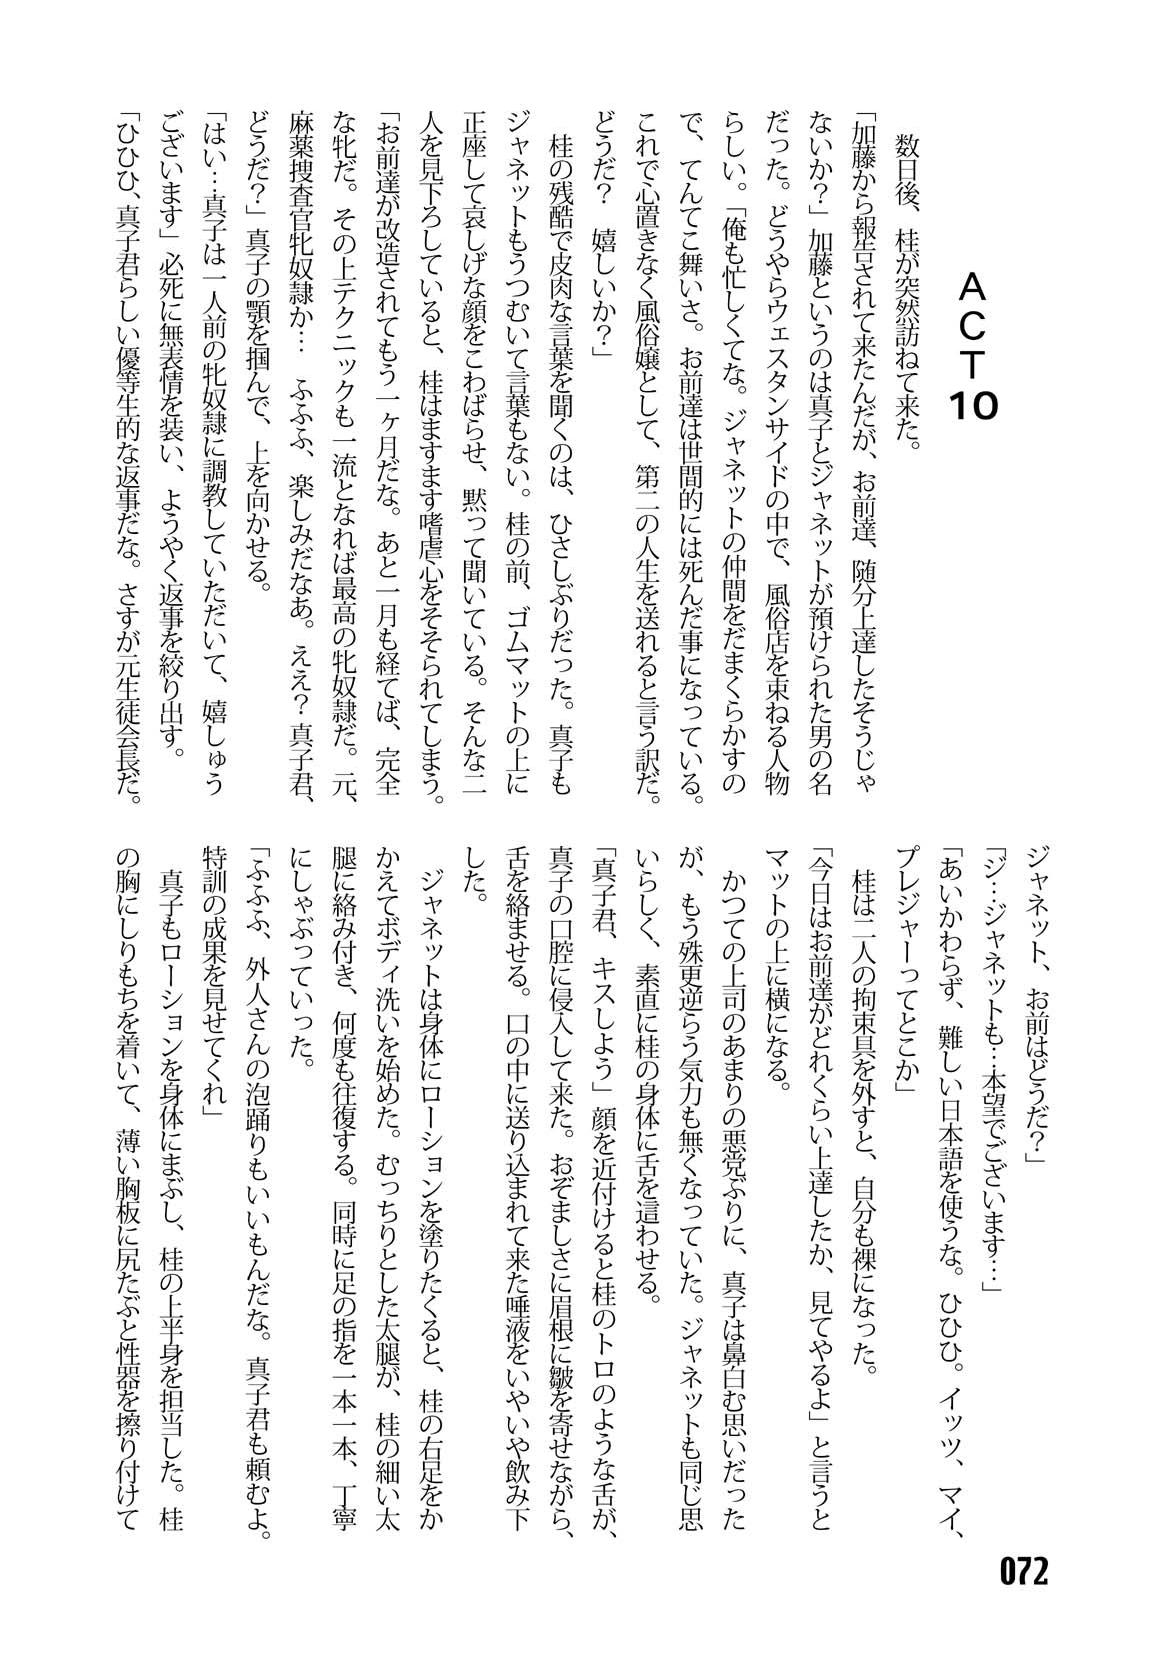 ACT10
数日後、桂が突然訪ねて来た。
「加藤から報告されて来たんだが、お前達、随分上達したそうじゃ
ないか？」加藤というのは真子とジャネットが預けられた男の名
だった。どうやらウェスタンサイドの中で、風俗店を束ねる人物
らしい。「俺も忙しくてな。ジャネットの仲間をだまくらかすの
で、てんてこ舞いさ。お前達は世間的には死んだ事になっている。
これで心置きなく風俗嬢として、第二の人生を送れると言う訳だ。
どうだ？　嬉しいか？」
桂の残酷で皮肉な言葉を聞くのは、ひさしぶりだった。真子も
ジャネットもうつむいて言葉もない。桂の前、ゴムマットの上に
正座して哀しげな顔をこわばらせ、黙って聞いている。そんな二
人を見下ろしていると、桂はますます嗜虐心をそそられてしまう。
「お前達が改造されてもう一ヶ月だな。あと一月も経てば、完全
な牝だ。その上テクニックも一流となれば最高の牝奴隷だ。元、
麻薬捜査官牝奴隷か…　ふふふ、楽しみだなあ。ええ？真子君、
どうだ？」真子の顎を掴んで、上を向かせる。
「はい…真子は一人前の牝奴隷に調教していただいて、嬉しゅう
ございます」必死に無表情を装い、ようやく返事を絞り出す。
「ひひひ、真子君らしい優等生的な返事だな。さすが元生徒会長だ。
ジャネット、お前はどうだ？」
「ジ…ジャネットも…本望でございます…」
「あいかわらず、難しい日本語を使うな。ひひひ。イッツ、マイ、
プレジャーってとこか」
桂は二人の拘束具を外すと、自分も裸になった。
「今日はお前達がどれくらい上達したか、見てやるよ」と言うと
マットの上に横になる。
かつての上司のあまりの悪党ぶりに、真子は鼻白む思いだった
が、もう殊更逆らう気力も無くなっていた。ジャネットも同じ思
いらしく、素直に桂の身体に舌を這わせる。
「真子君、キスしよう」顔を近付けると桂のトロのような舌が、
真子の口腔に侵入して来た。おぞましさに眉根に皺を寄せながら、
舌を絡ませる。口の中に送り込まれて来た唾液をいやいや飲み下
した。
ジャネットは身体にローションを塗りたくると、桂の右足をか
かえてボディ洗いを始めた。むっちりとした太腿が、桂の細い太
腿に絡み付き、何度も往復する。同時に足の指を一本一本、丁寧
にしゃぶっていった。
「ふふふ、外人さんの泡踊りもいいもんだな。真子君も頼むよ。
特訓の成果を見せてくれ」
真子もローションを身体にまぶし、桂の上半身を担当した。桂
の胸にしりもちを着いて、薄い胸板に尻たぶと性器を擦り付けて
072